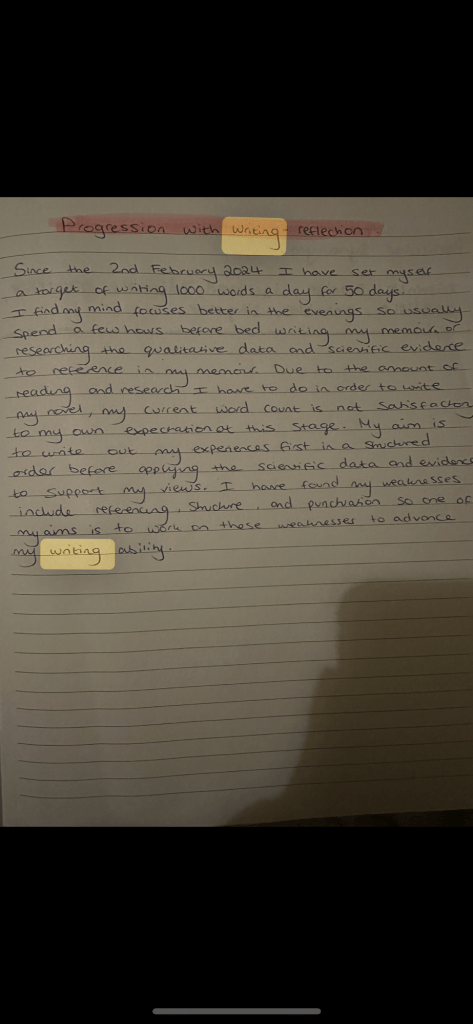 Progression with writing - reflection
Since the 2nd February 2024 I have set myself
a target of writing 1000 words a day for 50 days.
I find my mind focuses better in the evenings so usually
spend a few hours before bed writing my memoir or
researching the qualitative data and scientific evidence
to reference in my memoir. Due to the amount of
reading and research I have to do in order to write
my novel, my current word count is not satisfactory
to my own expectation at this stage. My aim is
to write out my experiences first in a structured
order before applying the scientific data and evidence
to support my views. I have found my weaknesses
include referencing, structure, and punctuation so one of
my aims is to work on these weaknesses to advance
my writing ability.